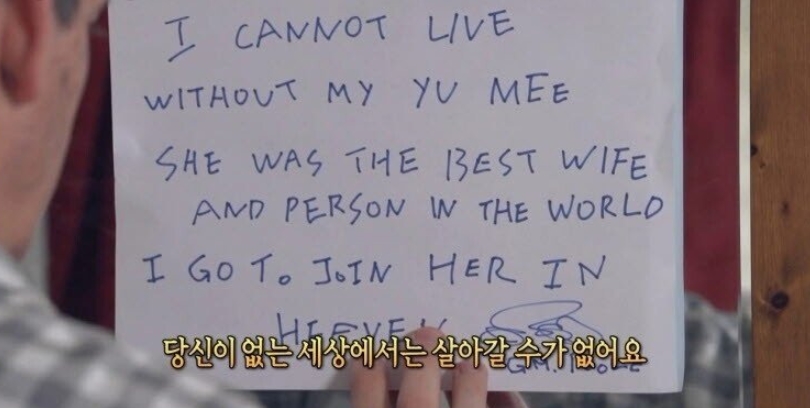 I CANNOT LIVE
WITHOUT MY YU MEE
SHE WAS THE BEST WIFE
AND PERSON IN THE WORLD
I GO TO JOIN HER IN
HEEVEN
당신이 없는 세상에서는 살아갈 수가 없어요